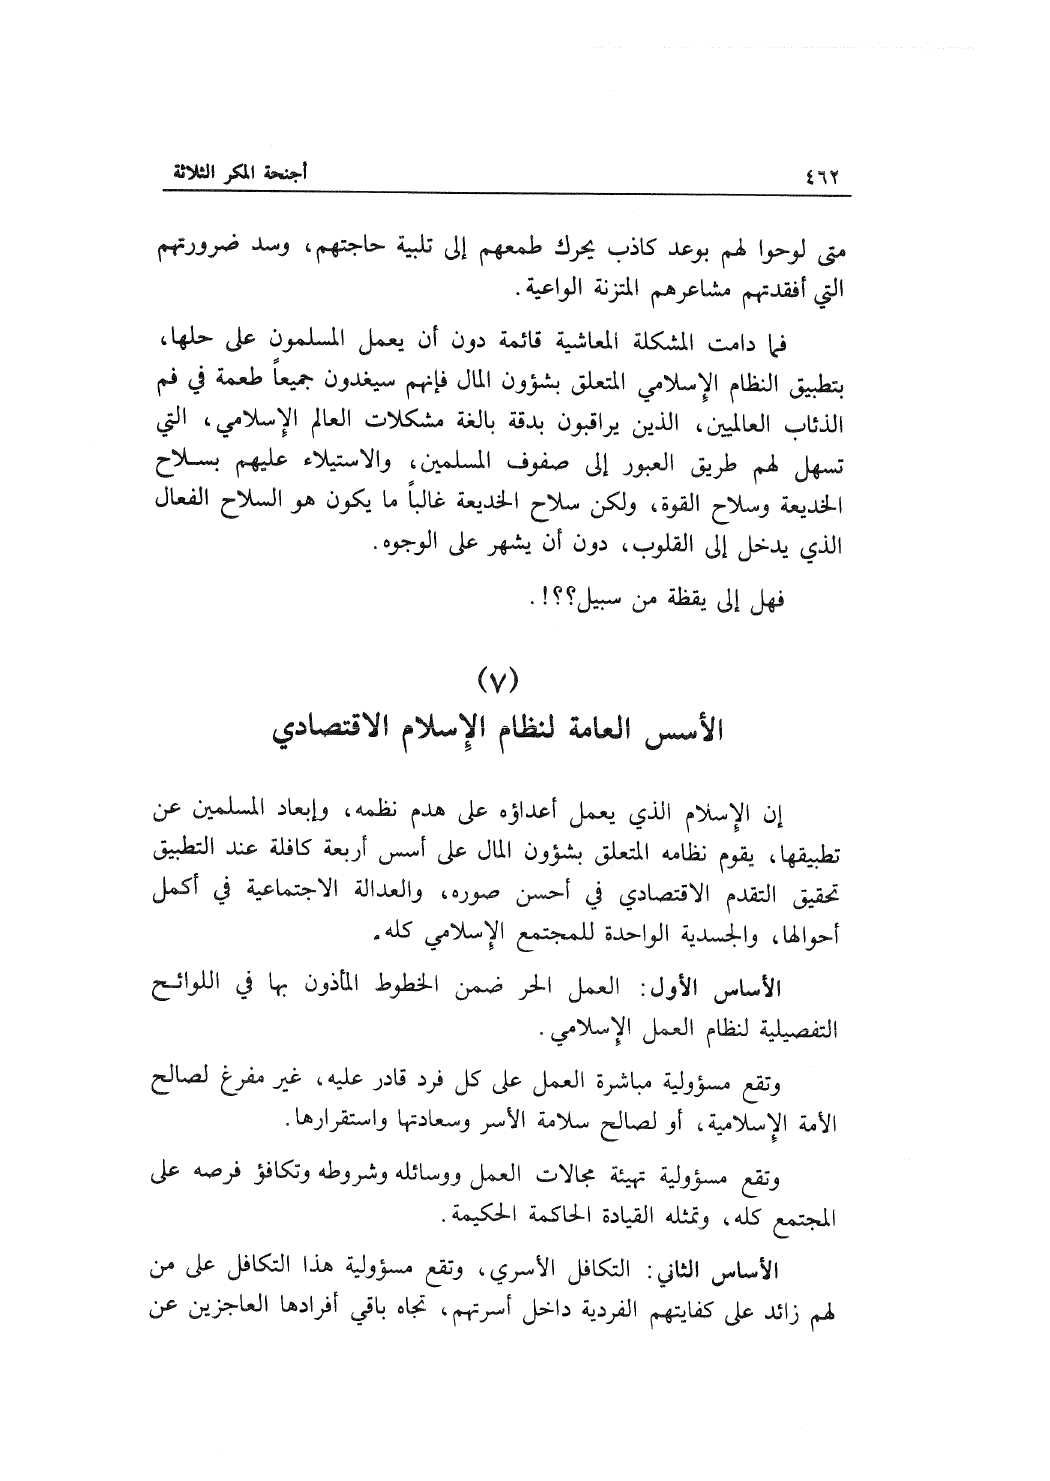 ٤٦٢
أجنحة المكر الثلاثة
متى لوحوا لهم بوعد كاذب يحرك طمعهم إلى تلبية حاجتهم، وسد ضرورتهم
التي أفقدتهم مشاعرهم المتزنة الواعية.
فما دامت المشكلة المعاشية قائمة دون أن يعمل المسلمون على حلها،
بتطبيق النظام الإسلامي المتعلق بشؤون المال فإنهم سيغدون جميعاً طعمة في فم
الذئاب العالميين، الذين يراقبون بدقة بالغة مشكلات العالم الإسلامي، التي
تسهل لهم طريق العبور إلى صفوف المسلمين، والاستيلاء عليهم بسلاح
الخديعة وسلاح القوة، ولكن سلاح الخديعة غالباً ما يكون هو السلاح الفعال
الذي يدخل إلى القلوب، دون أن يشهر على الوجوه.
فهل إلى يقظة من سبيل؟؟!.
(٧)
الأسس العامة لنظام الإسلام الاقتصادي
إن الإسلام الذي يعمل أعداؤه على هدم نظمه، وإبعاد المسلمين عن
تطبيقها، يقوم نظامه المتعلق بشؤون المال على أسس أربعة كافلة عند التطبيق
تحقيق التقدم الاقتصادي في أحسن صوره، والعدالة الاجتماعية في أكمل
أحوالها، والجسدية الواحدة للمجتمع الإسلامي كله.
الأساس الأول: العمل الحر ضمن الخطوط المأذون بها في اللوائح
التفصيلية لنظام العمل الإسلامي.
وتقع مسؤولية مباشرة العمل على كل فرد قادر عليه، غير مفرغ لصالح
الأمة الإسلامية، أو لصالح سلامة الأسر وسعادتها واستقرارها.
وتقع مسؤولية تهيئة مجالات العمل ووسائله وشروطه وتكافؤ فرصه على
المجتمع كله، وتمثله القيادة الحاكمة الحكيمة.
الأساس الثاني: التكافل الأسري، وتقع مسؤولية هذا التكافل على من
لهم زائد على كفايتهم الفردية داخل أسرتهم، تجاه باقي أفرادها العاجزين عن